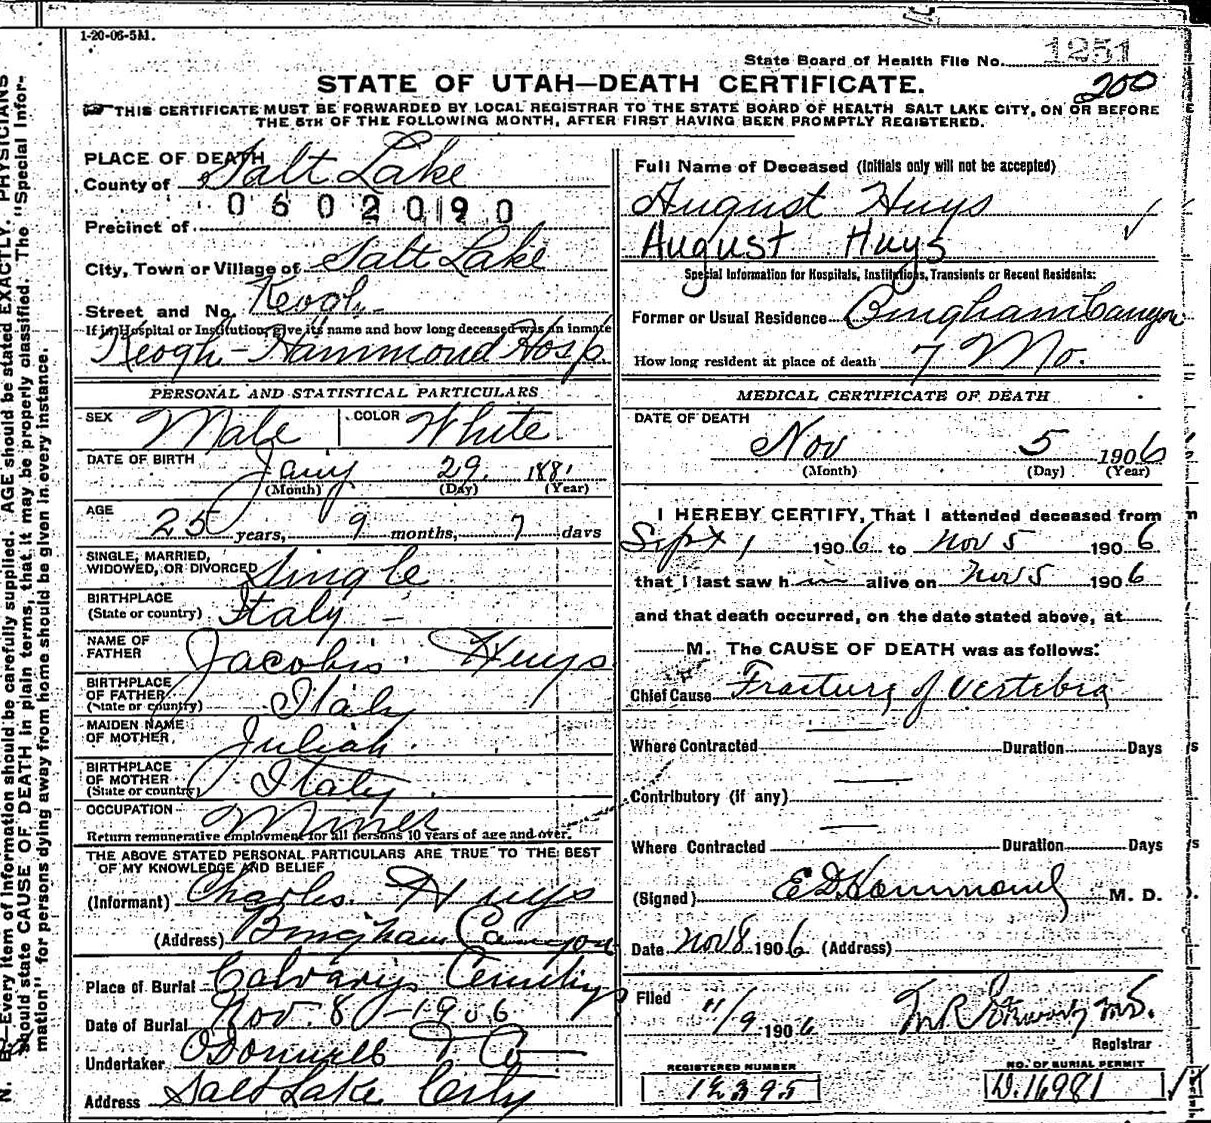 1-20-06-5M.
State Board of Health File No. 1251
200
STATE OF UTAH—DEATH CERTIFICATE.
THIS CERTIFICATE MUST BE FORWARDED BY LOCAL REGISTRAR TO THE STATE BOARD OF HEALTH SALT LAKE CITY, ON OR BEFORE
THE 5TH OF THE FOLLOWING MONTH, AFTER FIRST HAVING BEEN PROMPTLY REGISTERED.
PLACE OF DEATH
County of Salt Lake
0602090
Precinct of
City, Town or Village of Salt Lake
Street and No. Keogh
If in Hospital or Institution, give its name and how long deceased was an inmate
Keogh-Hammond Hosp.
PERSONAL AND STATISTICAL PARTICULARS
SEX Male COLOR White
DATE OF BIRTH Jany 29. 188
(Month) (Day) (Year)
AGE 25 years, 9 months, 7 days
SINGLE, MARRIED,
WIDOWED, OR DIVORCED Single
BIRTHPLACE
(State or country) Italy -
NAME OF
FATHER Jacobis Huys
BIRTHPLACE
OF FATHER
(State or country) Italy
MAIDEN NAME
OF MOTHER Juliah.
BIRTHPLACE
OF MOTHER
(State or country) Italy
OCCUPATION Miner
Return remunerative employment for all persons 10 years of age and over.
THE ABOVE STATED PERSONAL PARTICULARS ARE TRUE TO THE BEST
OF MY KNOWLEDGE AND BELIEF
(Informant) Charles Huys
(Address) Bingham Canyon
Place of Burial Calvary Cemetery
Date of Burial Nov. 8 - 1906
Undertaker O'Donnell & Co
Address Salt Lake City
Full Name of Deceased (Initials only will not be accepted)
August Huys
August Huys
Special Information for Hospitals, Institutions, Transients or Recent Residents:
Former or Usual Residence Bingham Canyon
How long resident at place of death 7 Mo.
MEDICAL CERTIFICATE OF DEATH
DATE OF DEATH
Nov 5 1906
(Month) (Day) (Year)
I HEREBY CERTIFY, That I attended deceased from
Sept 1 1906 to Nov 5 1906
that I last saw h im alive on Nov 5 1906
and that death occurred, on the date stated above, at
M. The CAUSE OF DEATH was as follows:
Chief Cause Fracture of Vertebra
Where Contracted Duration Days
Contributory (if any)
Where Contracted Duration Days
(Signed) E D Hammond M. D.
Date Nov 8 1906 (Address)
Filed 11/9 1906 M.D.
Registrar
REGISTERED NUMBER
12395
NO. OF BURIAL PERMIT
D.16981
N. B.—Every item of information should be carefully supplied. AGE should be stated EXACTLY. PHYSICIANS
should state CAUSE OF DEATH in plain terms, that it may be properly classified. The "Special Infor-
mation" for persons dying away from home should be given in every instance.